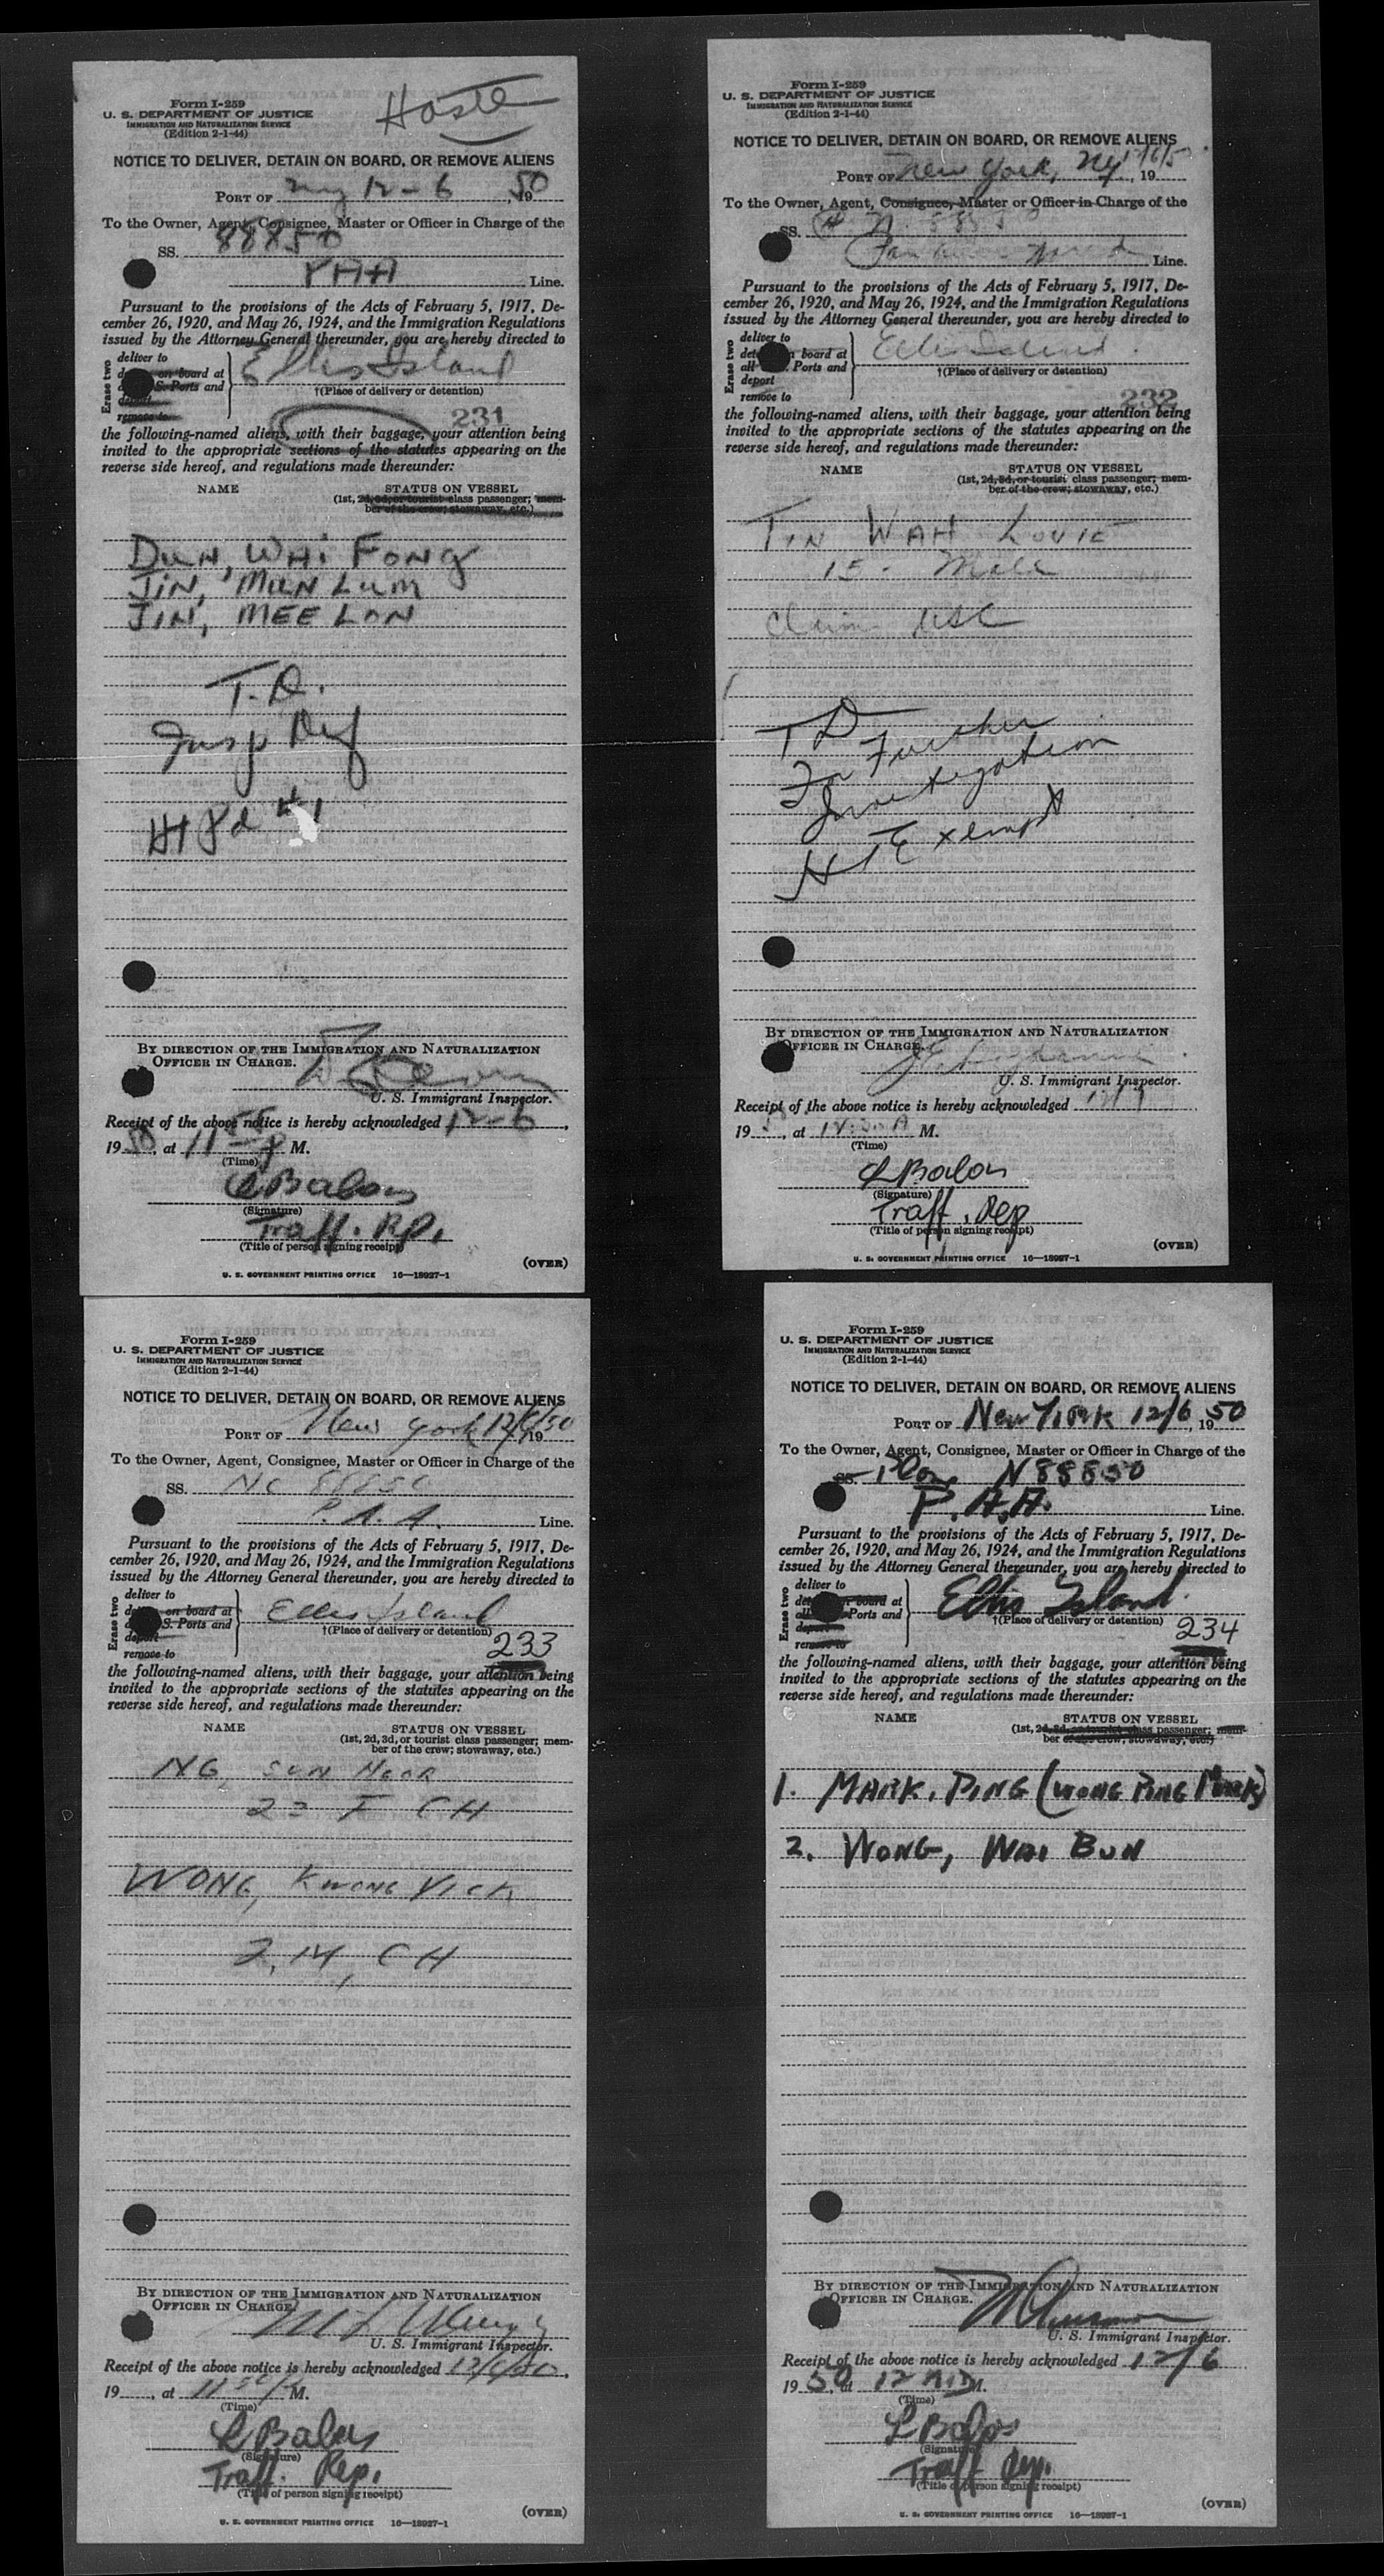 Form I-259
U. S. DEPARTMENT OF JUSTICE
IMMIGRATION AND NATURALIZATION SERVICE
(Edition 2-1-44)
NOTICE TO DELIVER, DETAIN ON BOARD, OR REMOVE ALIENS
PORT OF 12-6, 1950
To the Owner, Agent, Consignee, Master or Officer in Charge of the
SS. 88850
PAA Line.
Pursuant to the provisions of the Acts of February 5, 1917, De-
cember 26, 1920, and May 26, 1924, and the Immigration Regulations
issued by the Attorney General thereunder, you are hereby directed to
Erase two
deliver to
on board at
S. Ports and
remove to
Ellis Island
†(Place of delivery or detention)
231
the following-named aliens, with their baggage, your attention being
invited to the appropriate sections of the statutes appearing on the
reverse side hereof, and regulations made thereunder:
NAME STATUS ON VESSEL
(1st, 2d, 3d, or tourist class passenger; mem-
ber of the crew; stowaway, etc.)
DUN, WAI FONG
JIN, MUN LUM
JIN, MEE LON
T.D.
Insp Def
Ht Pd #1
BY DIRECTION OF THE IMMIGRATION AND NATURALIZATION
OFFICER IN CHARGE.
U. S. Immigrant Inspector.
Receipt of the above notice is hereby acknowledged 12-6,
1950, at 11 55 P M.
(Time)
L Balos
(Signature)
Traff. Rp.
(Title of person signing receipt)
(OVER)
U. S. GOVERNMENT PRINTING OFFICE 16—18927-1
Form I-259
U. S. DEPARTMENT OF JUSTICE
IMMIGRATION AND NATURALIZATION SERVICE
(Edition 2-1-44)
NOTICE TO DELIVER, DETAIN ON BOARD, OR REMOVE ALIENS
PORT OF New York, NY, 19
To the Owner, Agent, Consignee, Master or Officer in Charge of the
SS.
Line.
Pursuant to the provisions of the Acts of February 5, 1917, De-
cember 26, 1920, and May 26, 1924, and the Immigration Regulations
issued by the Attorney General thereunder, you are hereby directed to
Erase two
deliver to
board at
all Ports and
deport
remove to
Ellis Island.
†(Place of delivery or detention)
232
the following-named aliens, with their baggage, your attention being
invited to the appropriate sections of the statutes appearing on the
reverse side hereof, and regulations made thereunder:
NAME STATUS ON VESSEL
(1st, 2d, 3d, or tourist class passenger; mem-
ber of the crew; stowaway, etc.)
TIN WAH LOUIE
15 - Male
Claim USC
TD
For Further
Investigation
HT Exempt
BY DIRECTION OF THE IMMIGRATION AND NATURALIZATION
OFFICER IN CHARGE.
U. S. Immigrant Inspector.
Receipt of the above notice is hereby acknowledged
19, at M.
(Time)
L Balos
(Signature)
Traff. Rep
(Title of person signing receipt)
(OVER)
U. S. GOVERNMENT PRINTING OFFICE 16—18927-1
Form I-259
U. S. DEPARTMENT OF JUSTICE
IMMIGRATION AND NATURALIZATION SERVICE
(Edition 2-1-44)
NOTICE TO DELIVER, DETAIN ON BOARD, OR REMOVE ALIENS
PORT OF New York 12/6/50
To the Owner, Agent, Consignee, Master or Officer in Charge of the
SS. NC 88850
P.A.A. Line.
Pursuant to the provisions of the Acts of February 5, 1917, De-
cember 26, 1920, and May 26, 1924, and the Immigration Regulations
issued by the Attorney General thereunder, you are hereby directed to
Erase two
deliver to
on board at
S. Ports and
deport
remove to
Ellis Island
†(Place of delivery or detention)
233
the following-named aliens, with their baggage, your attention being
invited to the appropriate sections of the statutes appearing on the
reverse side hereof, and regulations made thereunder:
NAME STATUS ON VESSEL
(1st, 2d, 3d, or tourist class passenger; mem-
ber of the crew; stowaway, etc.)
NG, SUN
CH
WONG, KWONG YICK
14, CH
BY DIRECTION OF THE IMMIGRATION AND NATURALIZATION
OFFICER IN CHARGE.
U. S. Immigrant Inspector.
Receipt of the above notice is hereby acknowledged 12/6/50,
19, at M.
(Time)
L Balos
(Signature)
Traff. Rep.
(Title of person signing receipt)
(OVER)
U. S. GOVERNMENT PRINTING OFFICE 16—18927-1
Form I-259
U. S. DEPARTMENT OF JUSTICE
IMMIGRATION AND NATURALIZATION SERVICE
(Edition 2-1-44)
NOTICE TO DELIVER, DETAIN ON BOARD, OR REMOVE ALIENS
PORT OF New York 12/6, 1950
To the Owner, Agent, Consignee, Master or Officer in Charge of the
SS. Plane N88850
P.A.A. Line.
Pursuant to the provisions of the Acts of February 5, 1917, De-
cember 26, 1920, and May 26, 1924, and the Immigration Regulations
issued by the Attorney General thereunder, you are hereby directed to
Erase two
deliver to
on board at
Ports and
deport
remove to
Ellis Island.
†(Place of delivery or detention)
234
the following-named aliens, with their baggage, your attention being
invited to the appropriate sections of the statutes appearing on the
reverse side hereof, and regulations made thereunder:
NAME STATUS ON VESSEL
(1st, 2d, 3d, or tourist class passenger; mem-
ber of the crew; stowaway, etc.)
1. MARK, PING (WONG PING MARK)
2. WONG, WAI BUN
BY DIRECTION OF THE IMMIGRATION AND NATURALIZATION
OFFICER IN CHARGE.
U. S. Immigrant Inspector.
Receipt of the above notice is hereby acknowledged 12/6
1950, at 12 MID M.
(Time)
L Balos
(Signature)
Traff Rep.
(Title of person signing receipt)
(OVER)
U. S. GOVERNMENT PRINTING OFFICE 16—18927-1